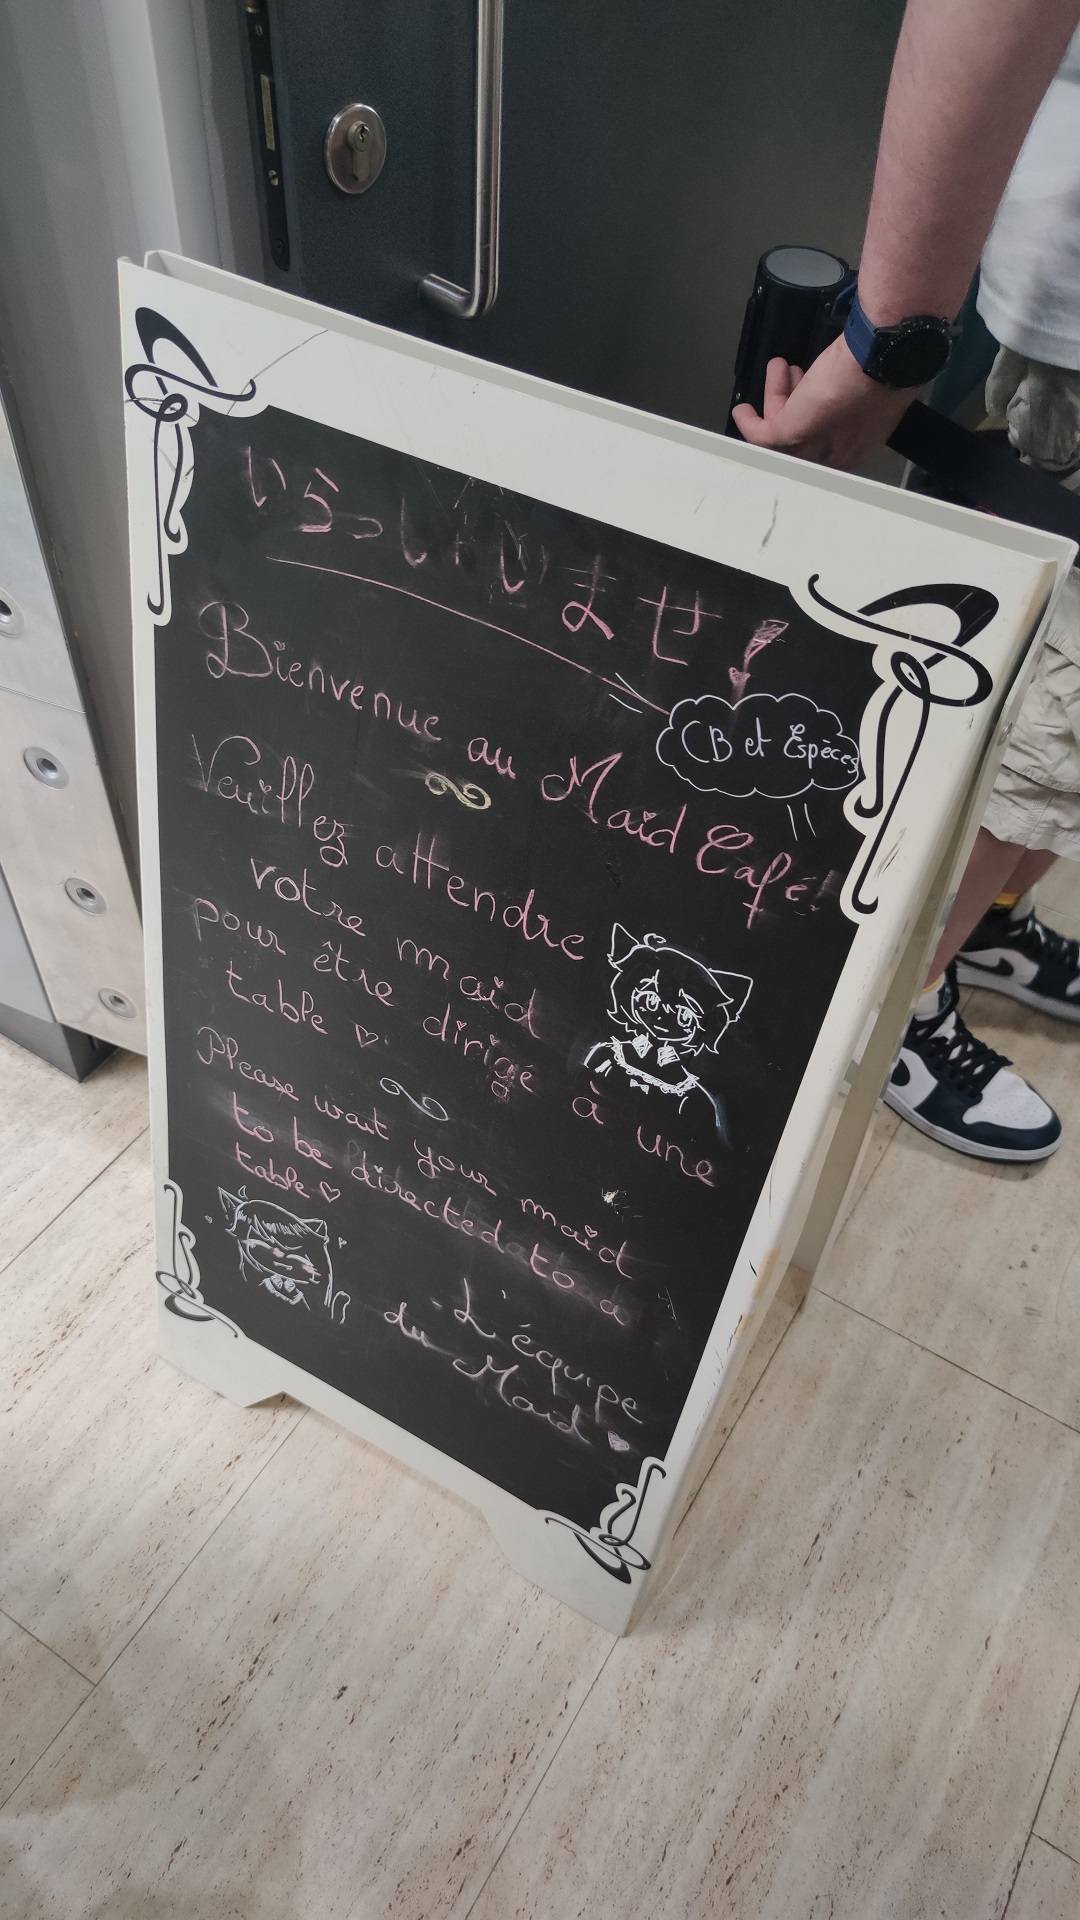 いらっしゃいませ!
CB et Espèces
Bienvenue au Maid Café!
Veuillez attendre
votre maid
pour être dirigé à une
table ♡
Please wait your maid
to be directed to a
table ♡
L'équipe
du Maid ♥